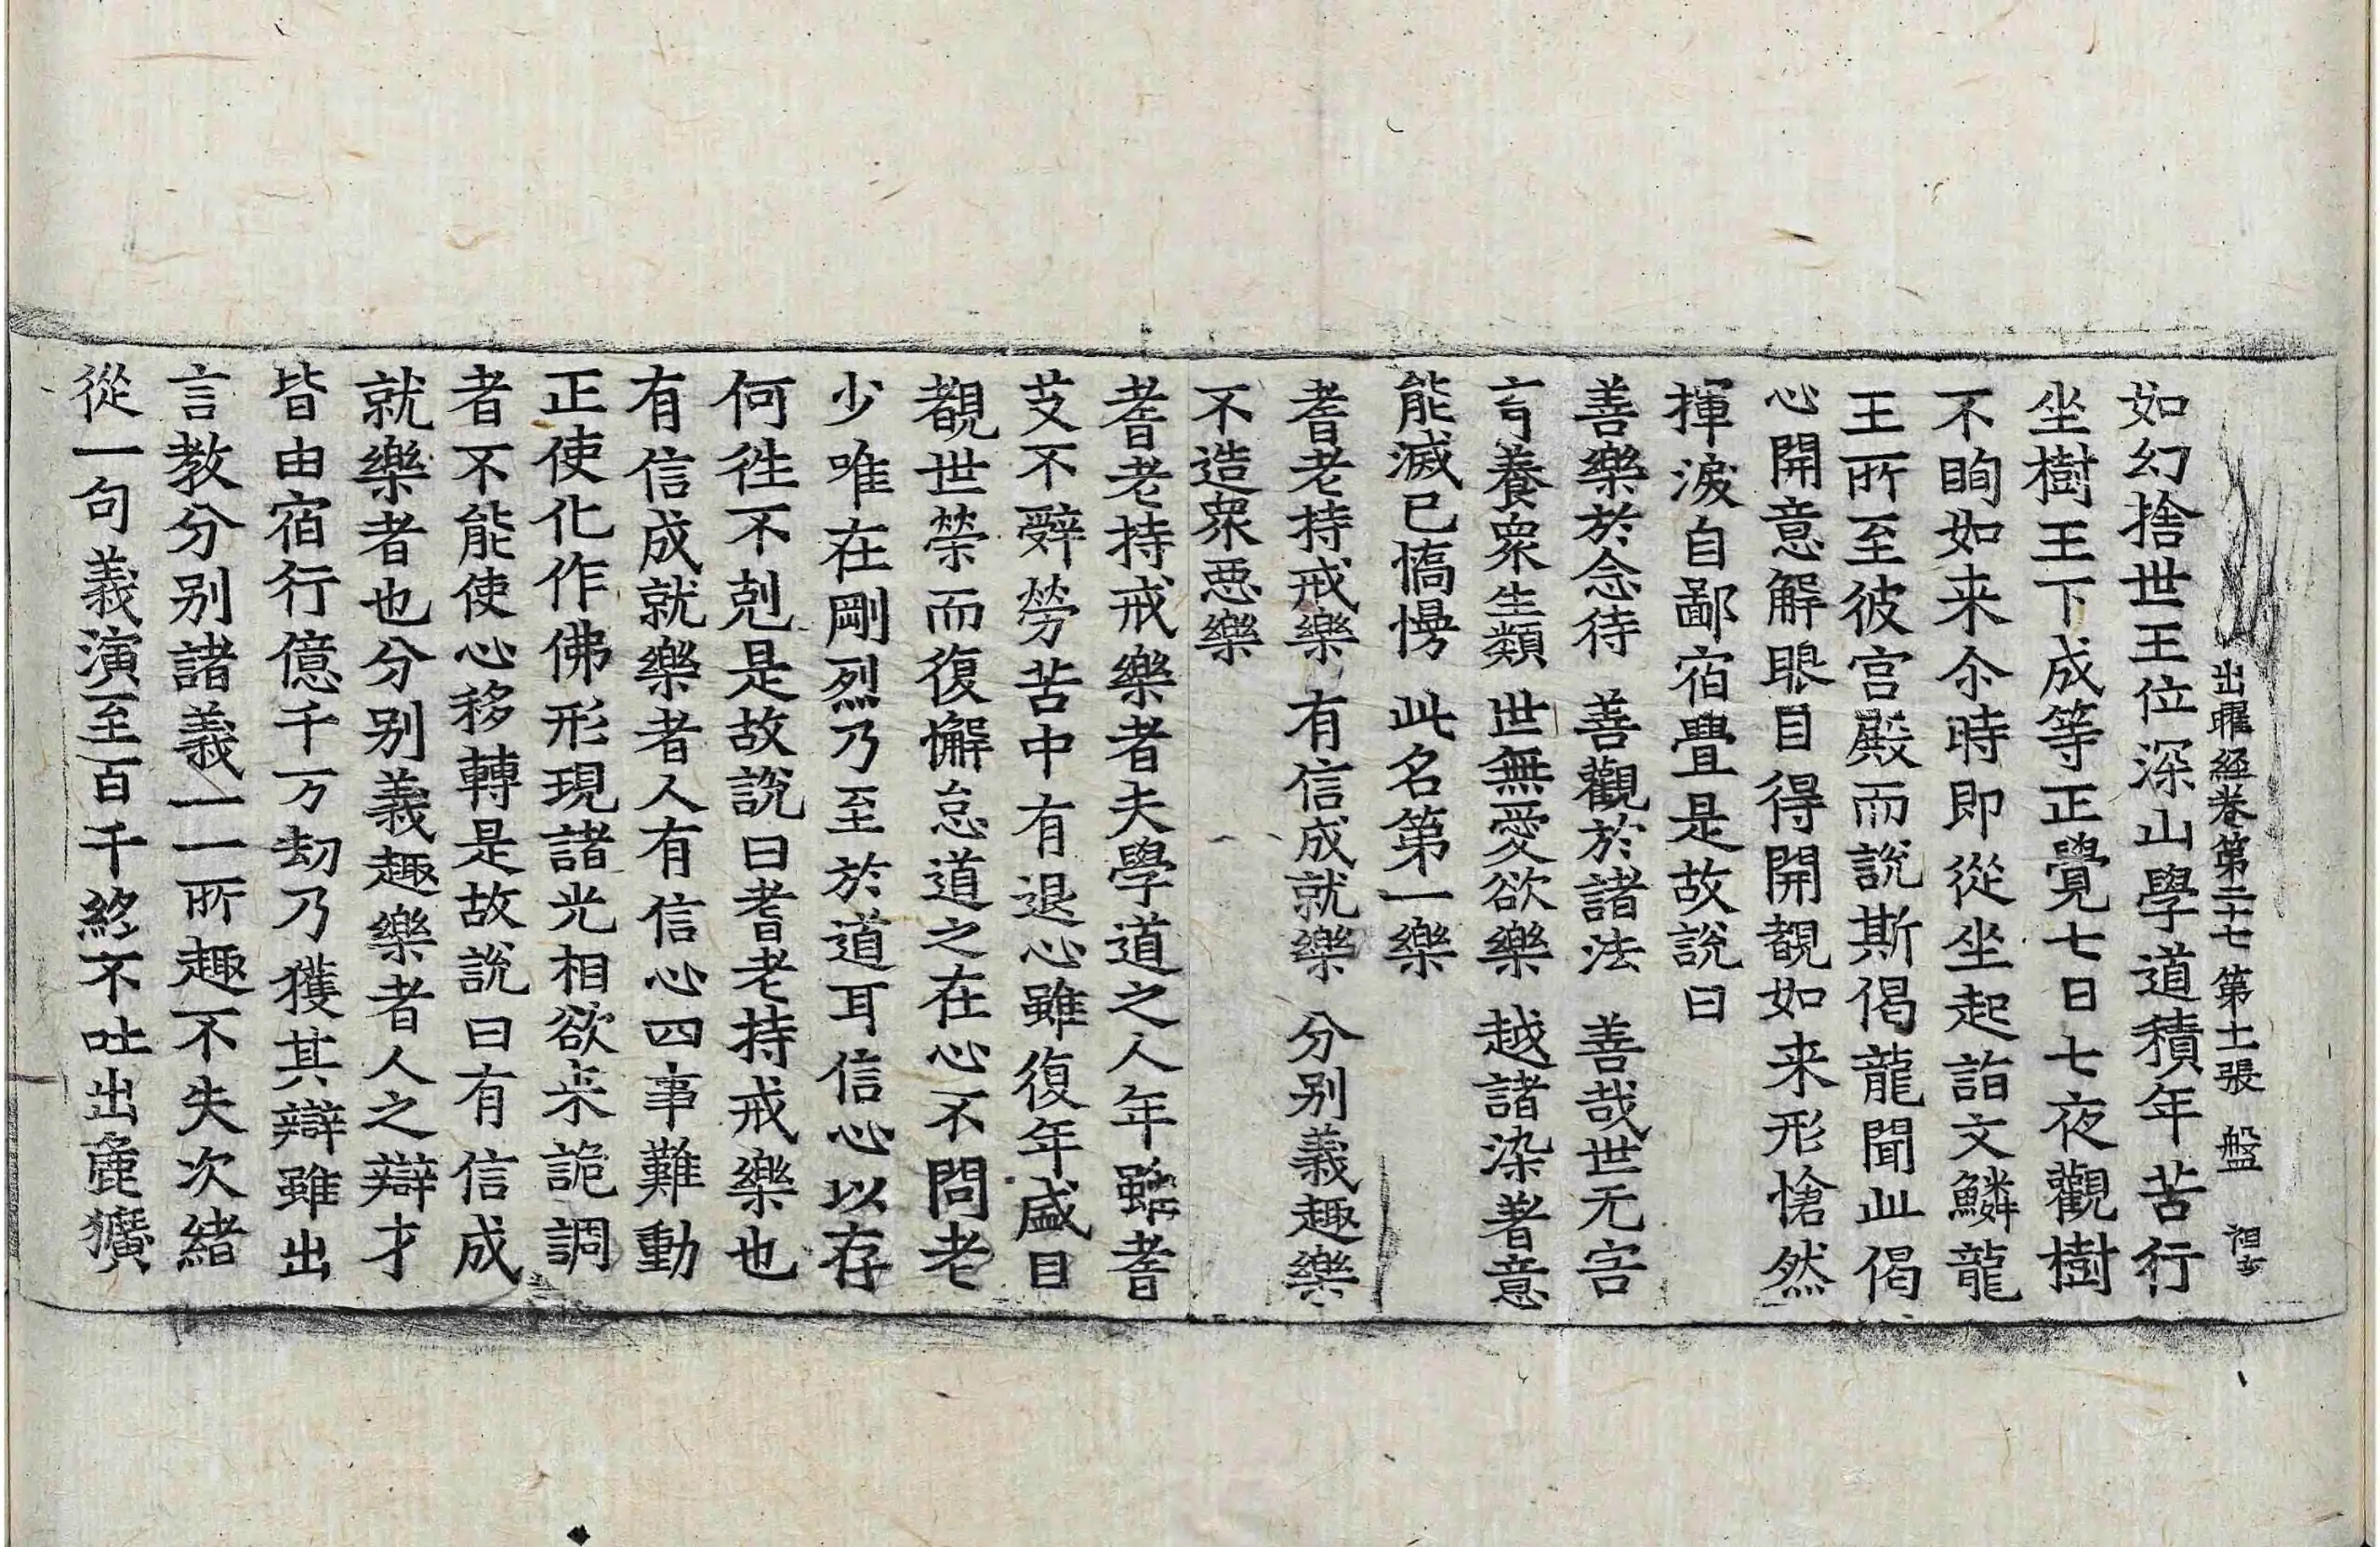 出曜經卷第二十七 第十一張 盤
如幻捨世王位深山學道積年苦行
坐樹王下成等正覺七日七夜觀樹
不眴如来尒時即從坐起詣文鱗龍
王所至彼宮殿而說斯偈龍聞此偈
心開意解眼目得開覩如来形愴然
揮淚自鄙宿疊是故說曰
善樂於念待 善觀於諸法 善哉世无害
育養衆生類 世無愛欲樂 越諸染著意
能滅已憍慢 此名第一樂
耆老持戒樂 有信成就樂 分别義趣樂
不造衆惡樂
耆老持戒樂者夫學道之人年雖耆
艾不辭勞苦中有退心雖復年盛目
覩世榮而復懈怠道之在心不問老
少唯在剛烈乃至於道耳信心以存
何徃不剋是故說曰耆老持戒樂也
有信成就樂者人有信心四事難動
正使化作佛形現諸光相欲来詭調
者不能使心移轉是故說曰有信成
就樂者也分别義趣樂者人之辯才
皆由宿行億千万劫乃獲其辯雖出
言教分别諸義一一所趣不失次緒
從一句義演至百千終不吐出麁獷